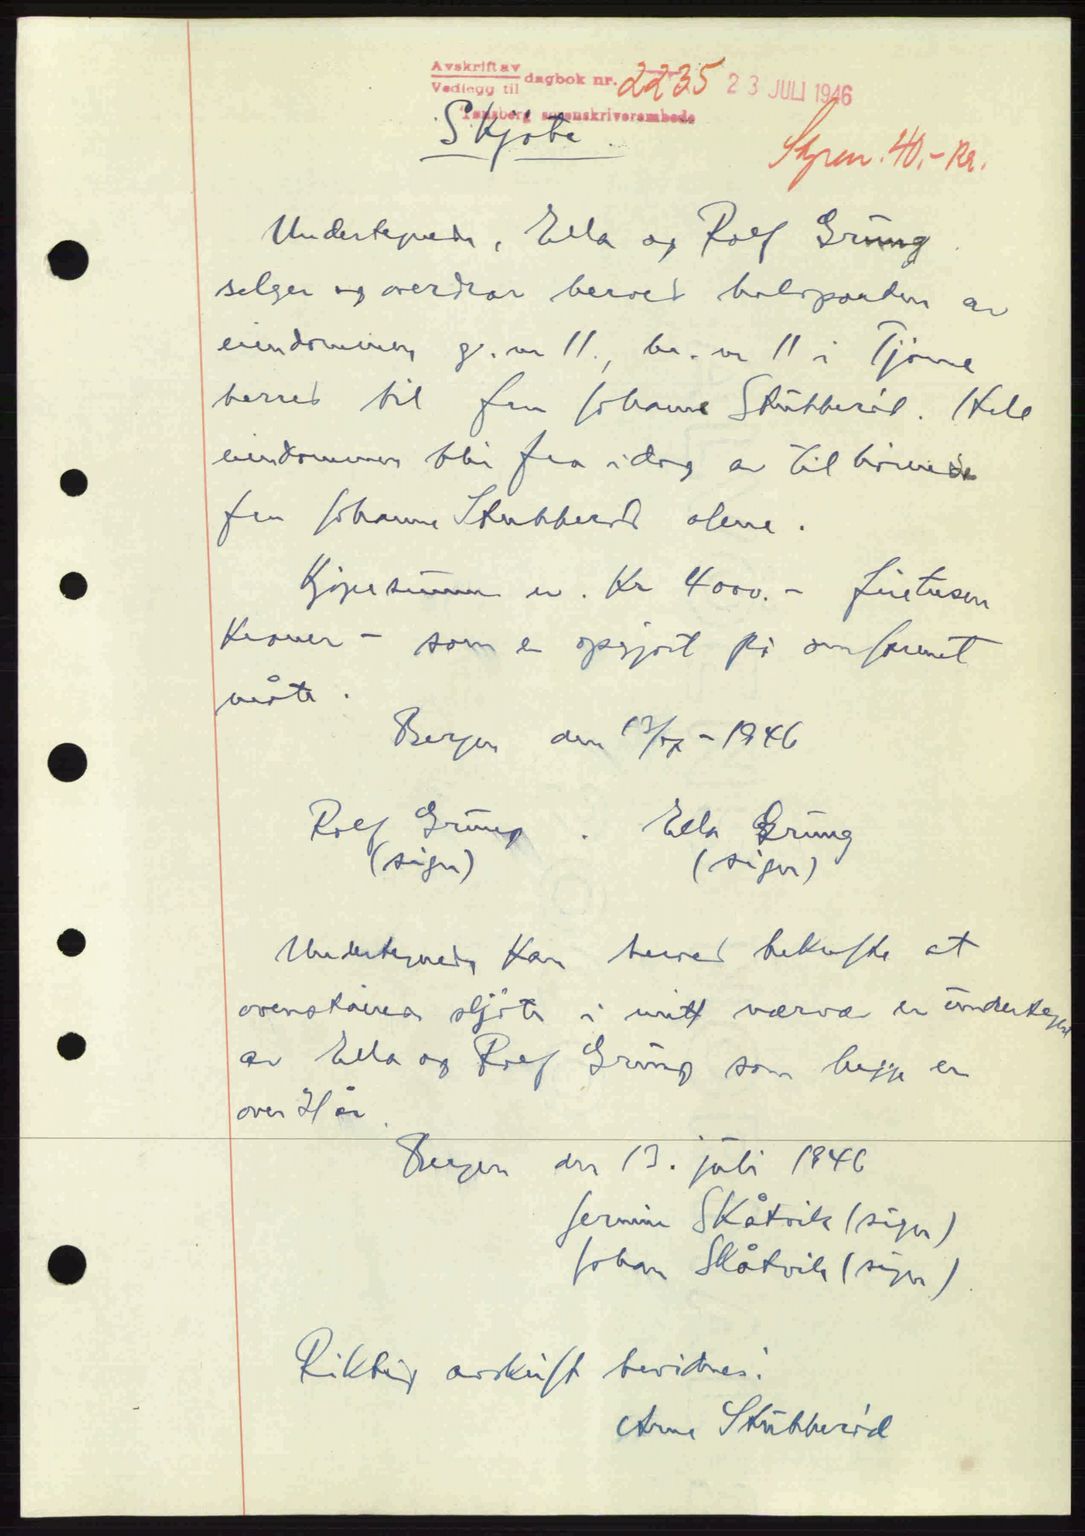 Avskrift av
Vedlegg til dagbok nr. 2235 23 JULI 1946
Tønsberg sorenskriverembede
Skjøte.
Stpen. 40.- kr.
Undertegnede, Ella og Rolf Grüng
selger og overdrar herved halvparten av
eiendommen g. nr 11., br. nr 11 i Tjøme
herred til fru Johanne Stubberød. Hele
eiendommen blir fra idag av tilhørende
fru Johanne Stubberød alene.
Kjøpesummen er. Kr 4000.- firetusen
Kroner - som er opgjort på omforenet
måte.
Bergen den 13/7 - 1946
Rolf Grüng. Ella Grüng
(sign) (sign)
Undertegnede kan herved bekrefte at
ovenstående skjøte i mitt nærvær er undertegnet
av Ella og Rolf Grüng som begge er
over 21 år.
Bergen den 13. juli 1946
Skåtvik (sign)
Johan Skåtvik (sign)
Riktig avskrift bevidnes:
Arne Stubberød